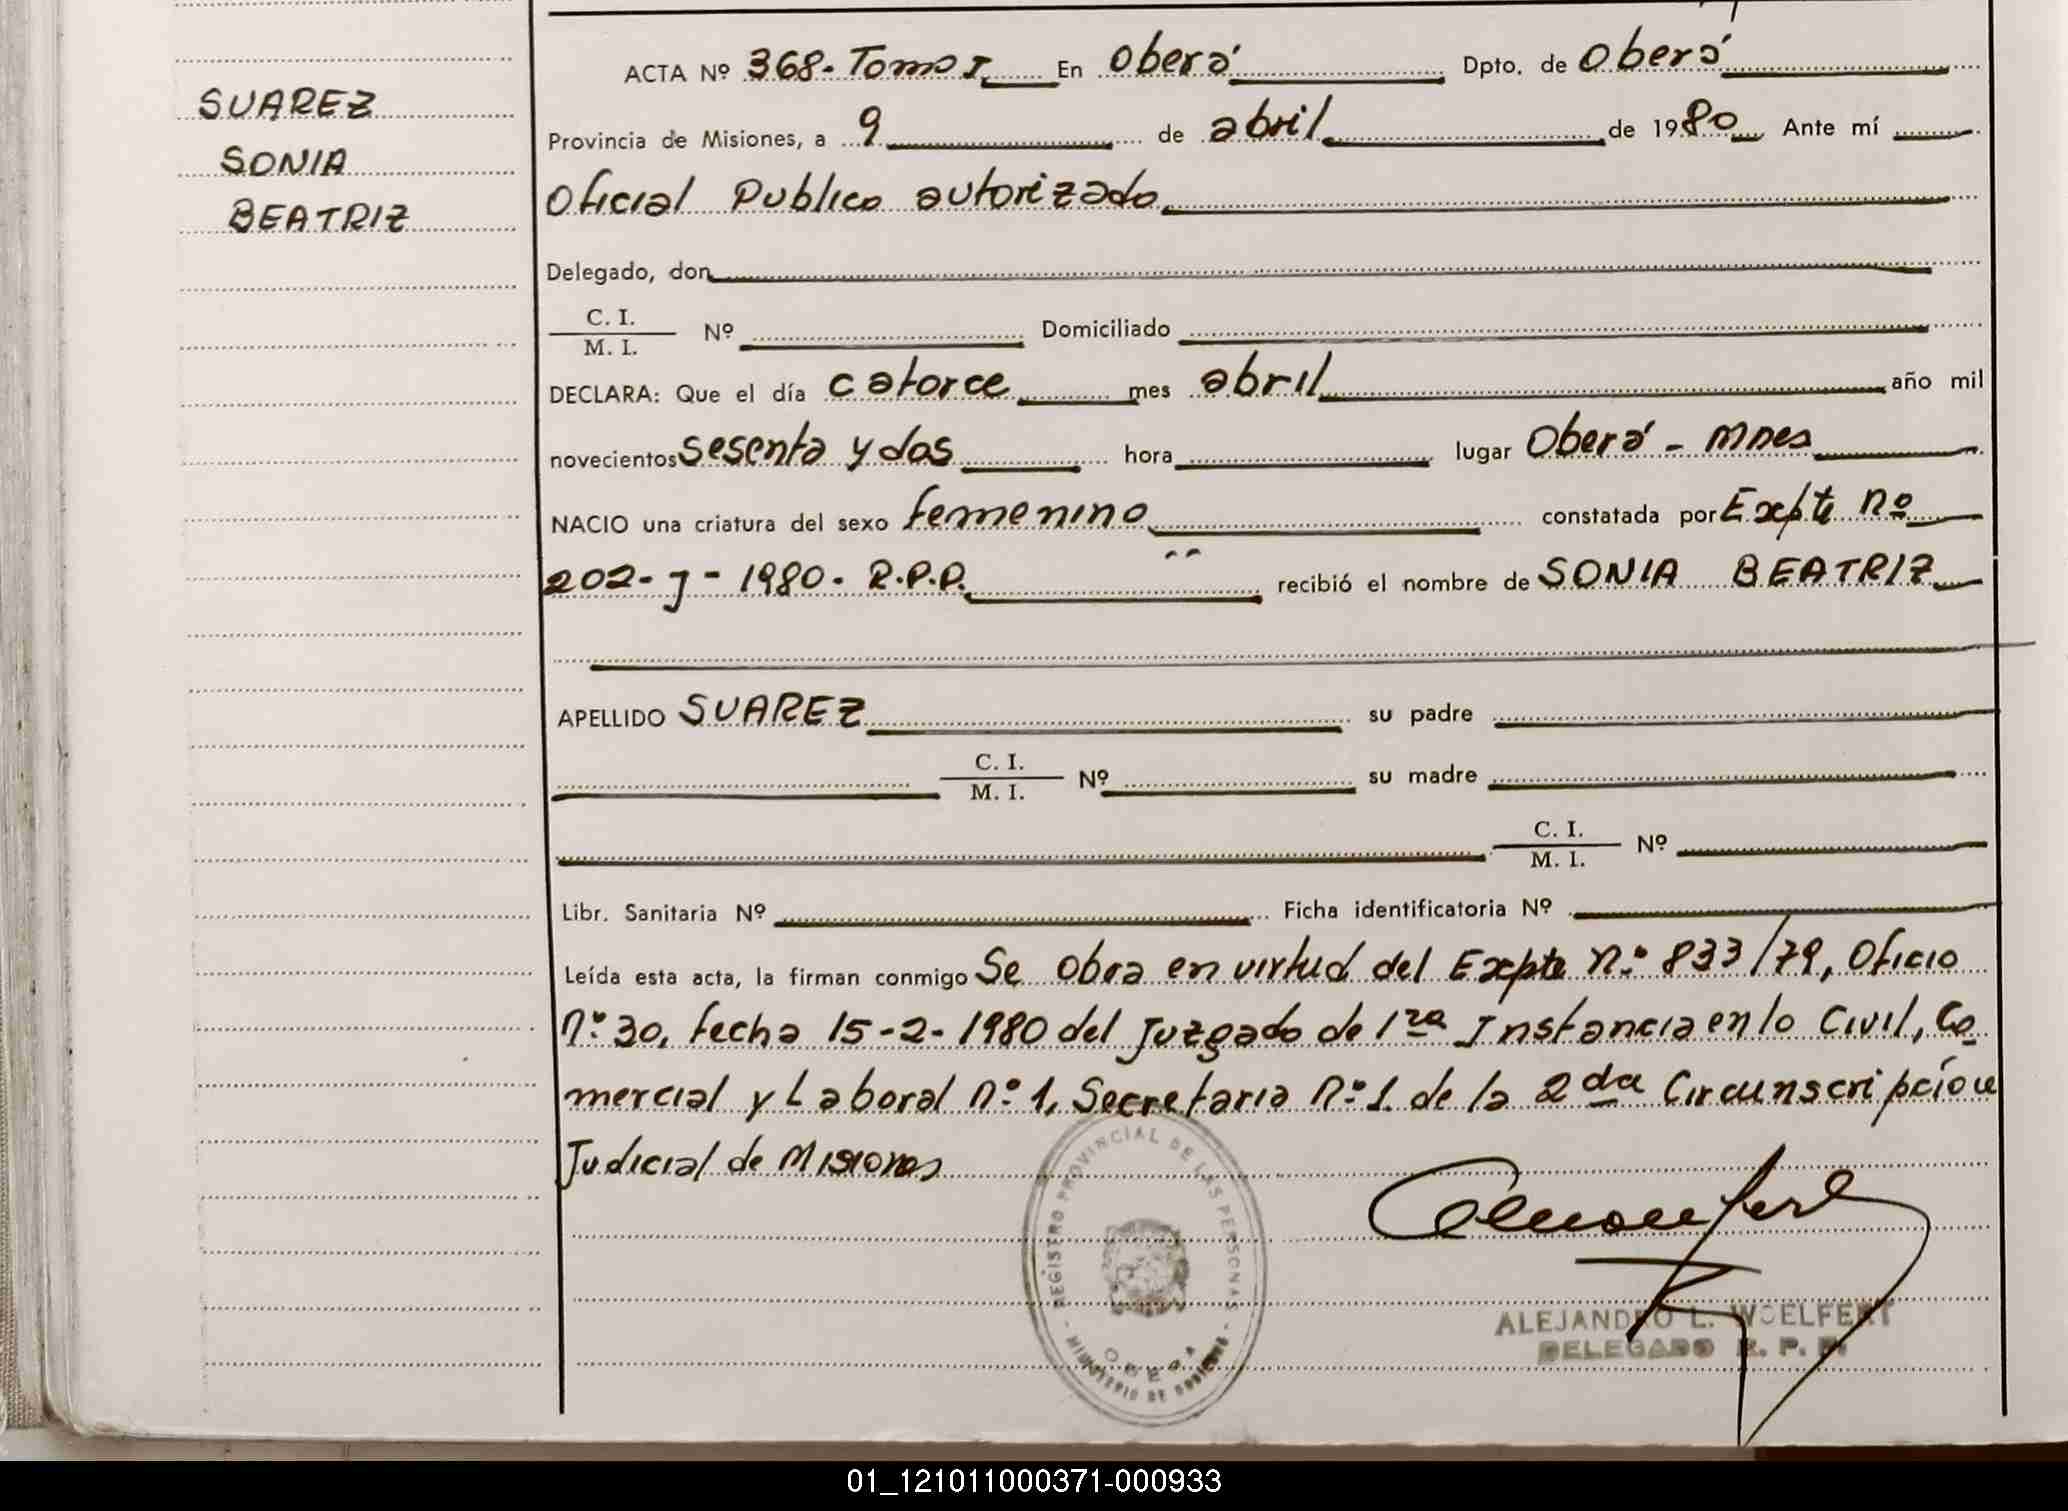 SUAREZ
SONIA
BEATRIZ
ACTA Nº 368- Tomo I En Oberá Dpto. de Oberá
Provincia de Misiones, a 9 de abril de 1980 Ante mí
Oficial Publico autorizado
Delegado, don
C. I.
M. I.
Nº Domiciliado
DECLARA: Que el día catorce mes abril año mil
novecientos sesenta y dos hora lugar Oberá - Mnes
NACIO una criatura del sexo femenino constatada por Expte nº
202-J-1980- R.P.P. recibió el nombre de SONIA BEATRIZ
APELLIDO SUAREZ su padre
C. I.
M. I.
Nº su madre
C. I.
M. I.
Nº
Libr. Sanitaria Nº Ficha identificatoria Nº
Leída esta acta, la firman conmigo Se obra en virtud del Expte n.º 833/79, Oficio
n.º 30, fecha 15-2-1980 del Juzgado de 1ra Instancia en lo Civil, Co
mercial y Laboral n.º 1, Secretaria n.º 1 de la 2da Circunscripción
Judicial de Misiones
REGISTRO PROVINCIAL DE LAS PERSONAS
OBERA
MINISTERIO DE GOBIERNO
ALEJANDRO L. WOELFERT
DELEGADO R. P. P.
01_121011000371-000933